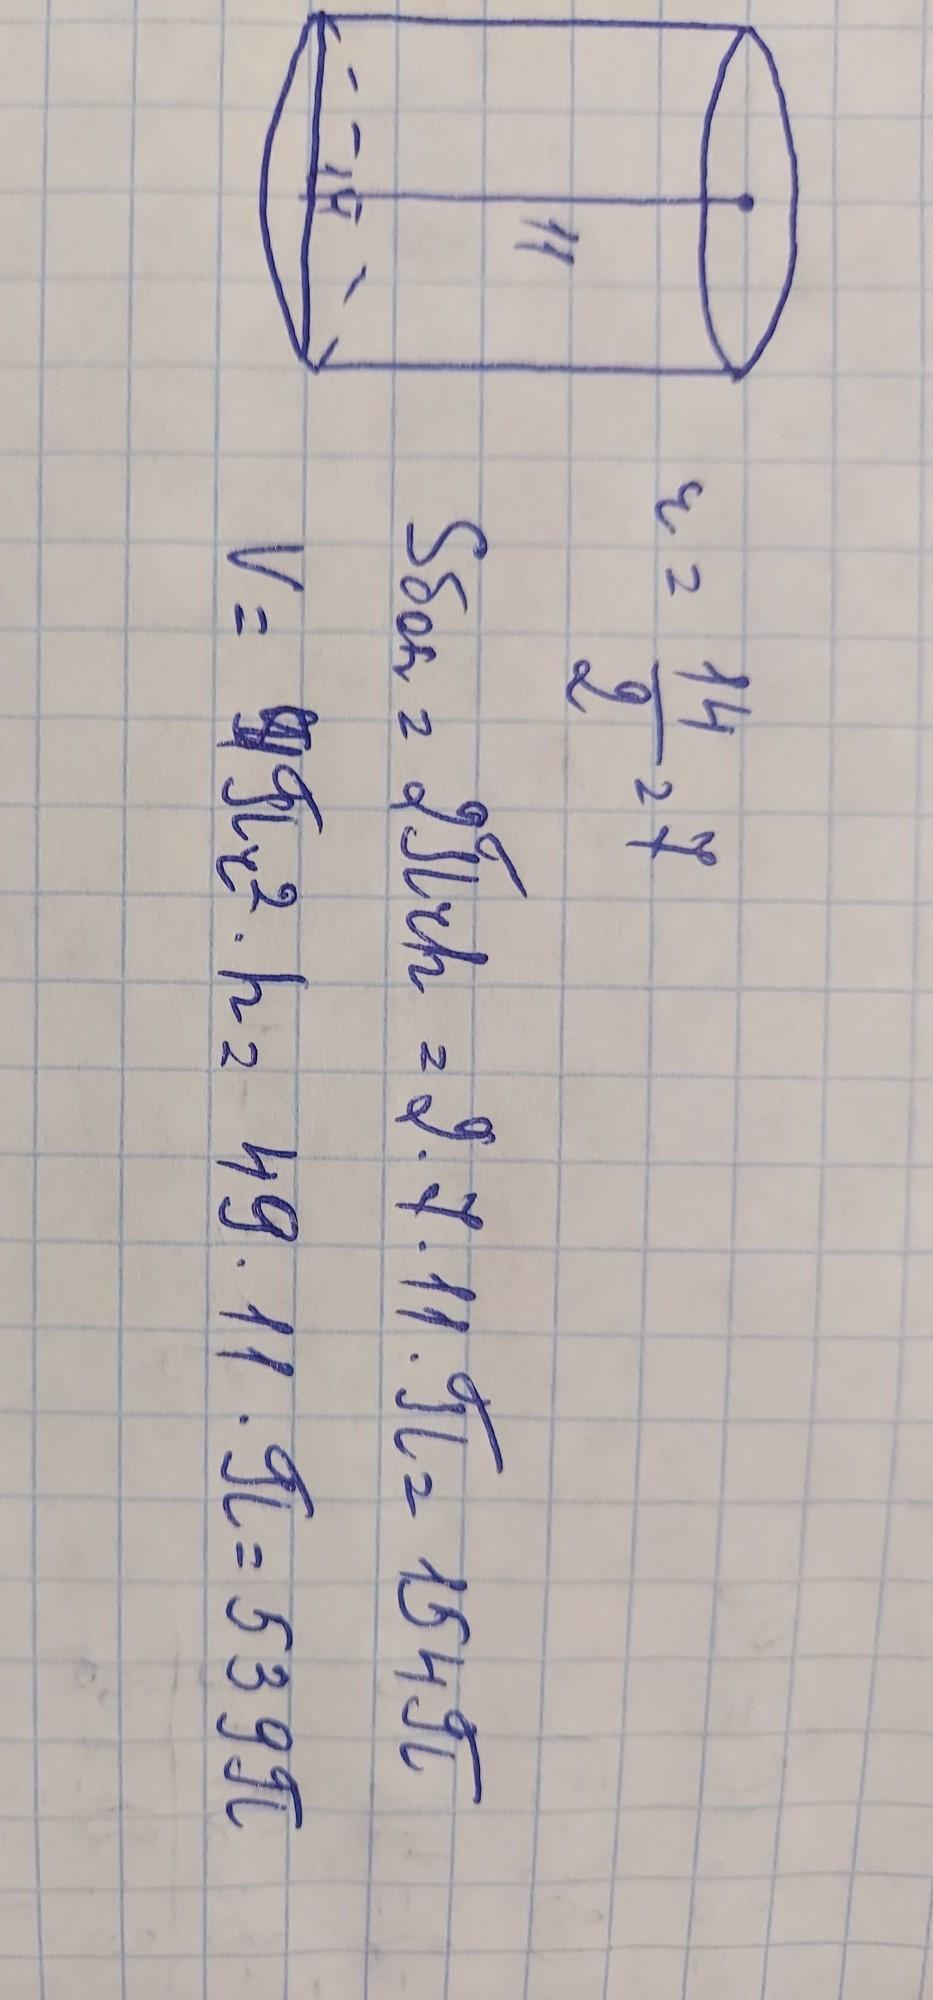 14
11
r = 14/2 = 7
Sбок = 2πrh = 2·7·11·π = 154π
V = πr²·h = 49·11·π = 539π